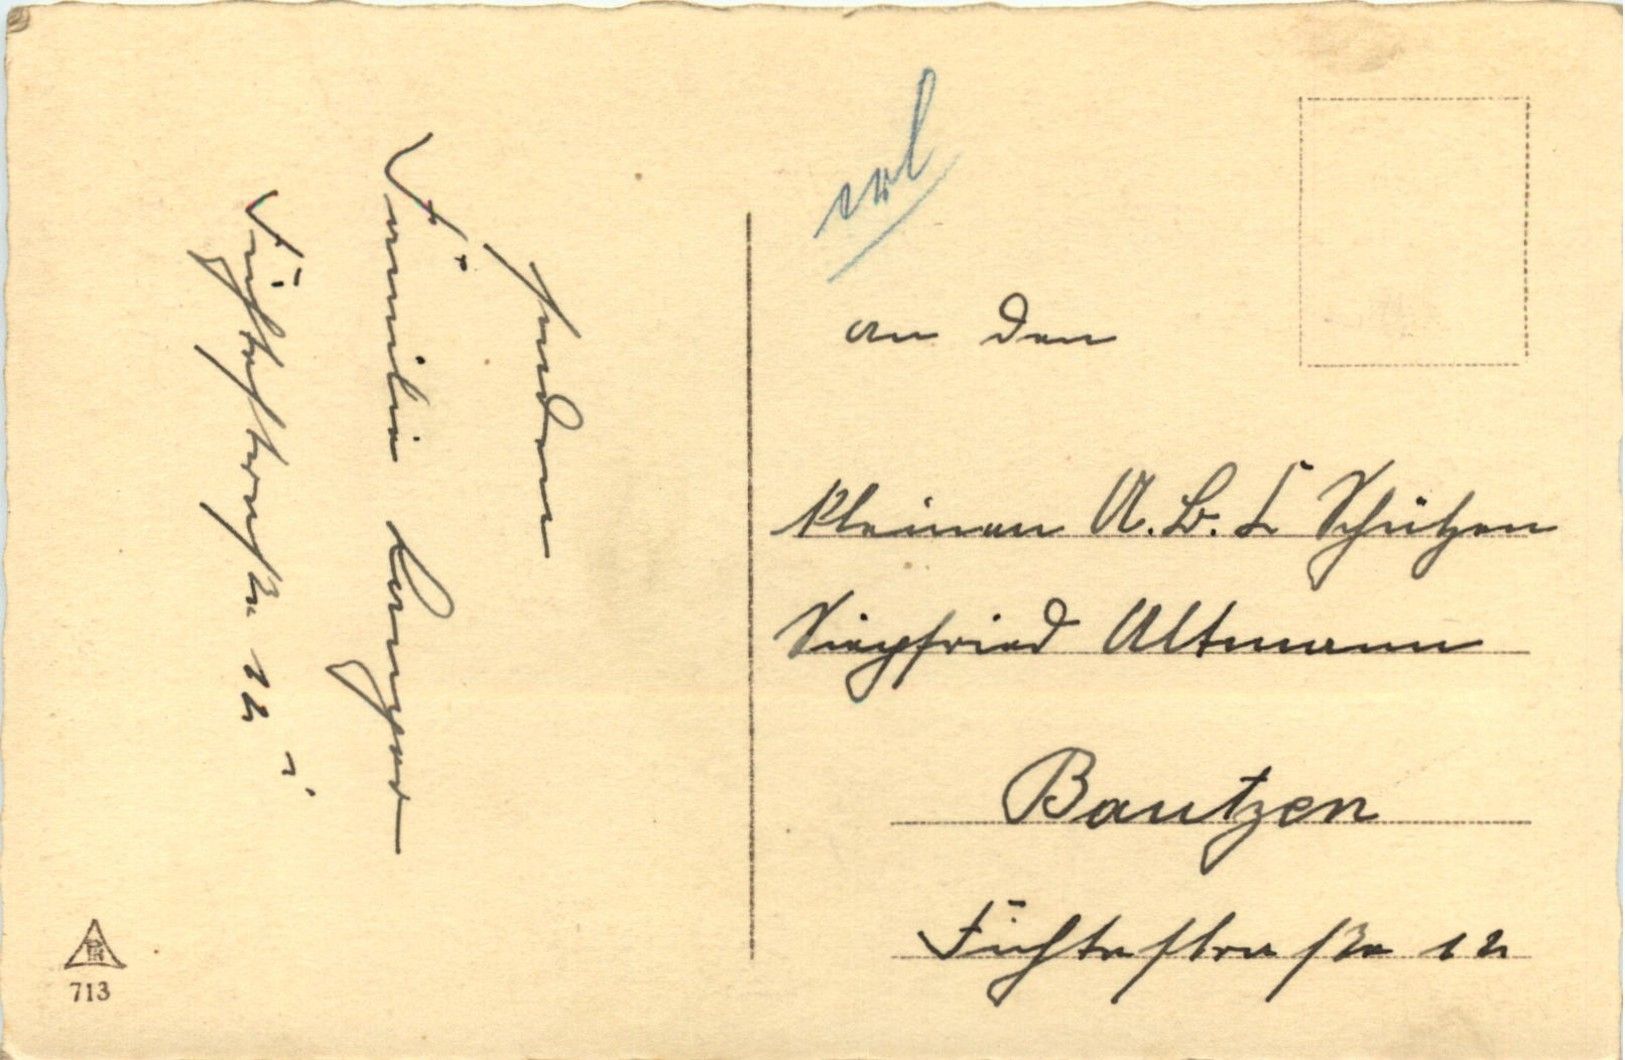 senden
Familie Langer
Fichtestraße 12
an den
kleinen A.B.C Schützen
Siegfried Altmann
Bautzen
Fichtestraße 12
713